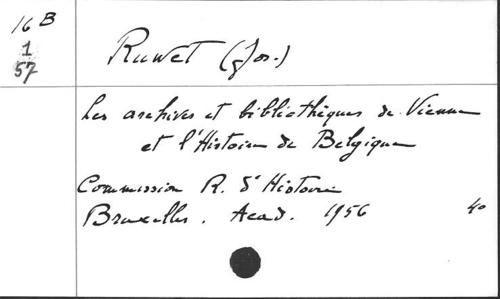 16 B
1
57
Ruwet (Jos.)
Les archives et bibliothèques de Vienne
et l'Histoire de Belgique
Commission R. d'Histoire
Bruxelles. Acad. 1956 4°